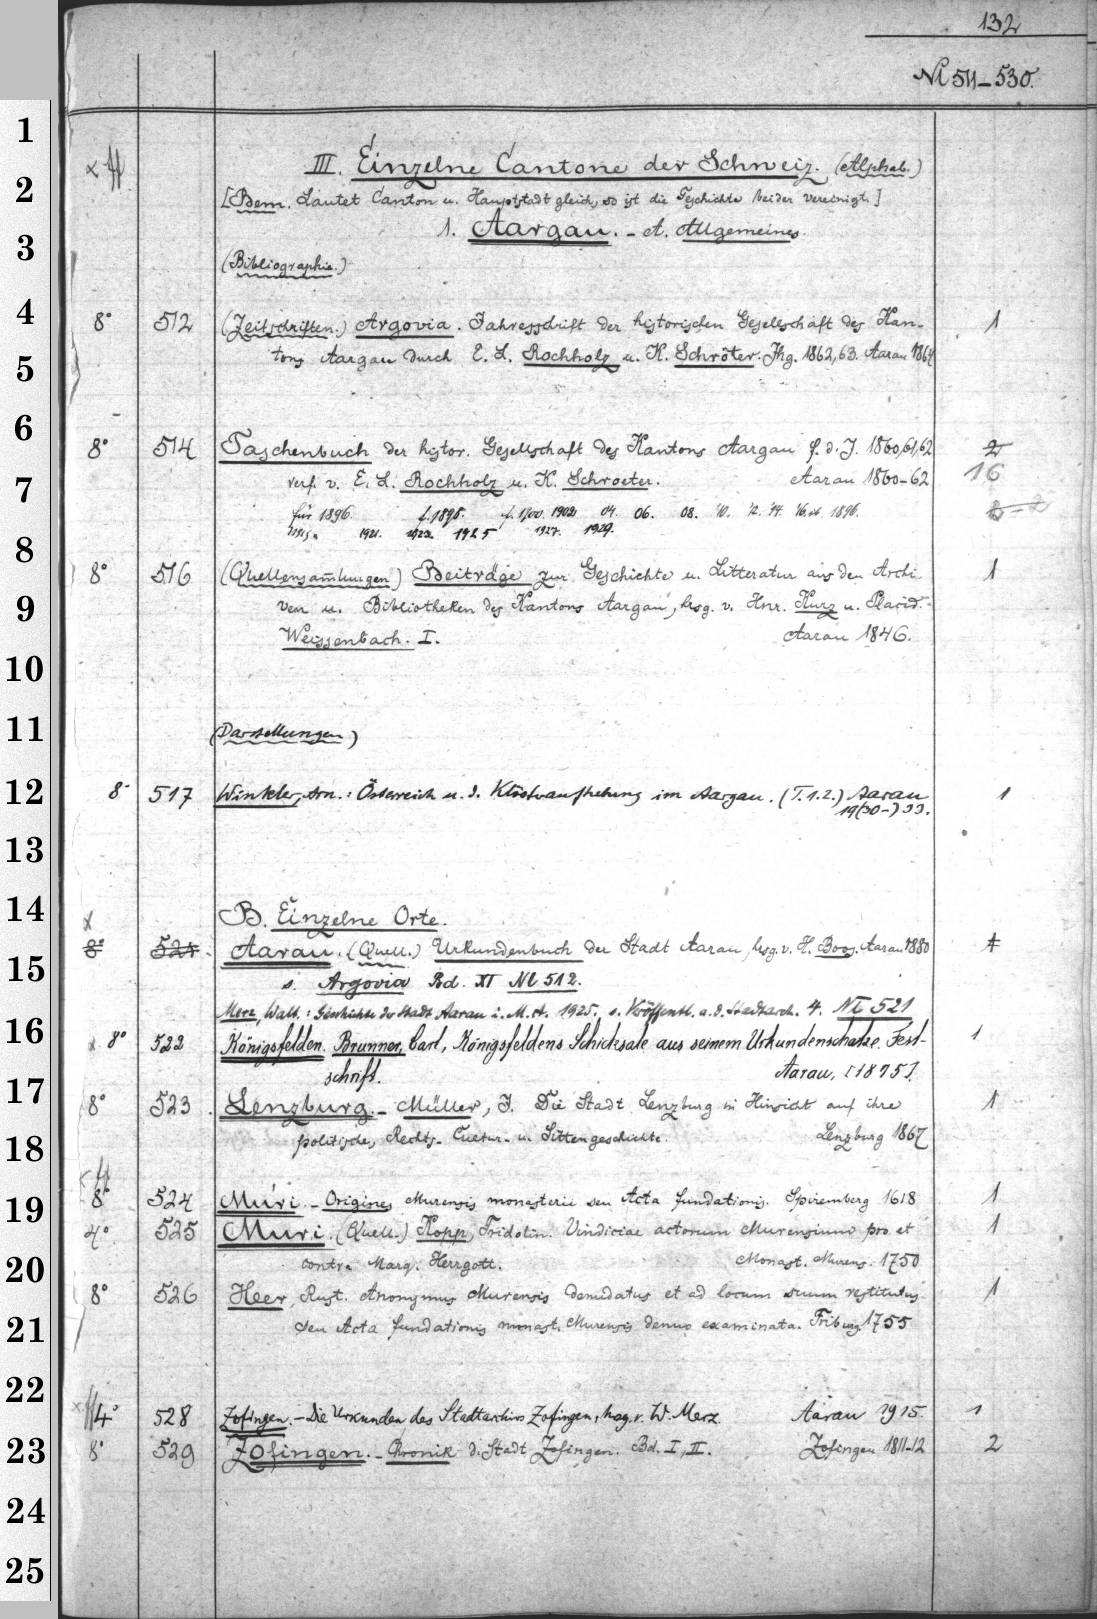 132
Nl 511-530.
III. Einzelne Cantone der Schweiz. (Alphab.)
[Bem. Lautet Canton u. Hauptstadt gleich, so ist die Geschichte beider vereinigt.]
1. Aargau. - A. Allgemeines.
(Bibliographie.)
8° 512 (Zeitschriften.) Argovia. Jahresschrift der historischen Gesellschaft des Kan- 1
tons Aargau durch E. L. Rochholz u. K. Schröter. Jhg. 1862,63. Aarau 1864
8° 514 Taschenbuch der histor. Gesellschaft des Kantons Aargau f. d. J. 1860,61,62 2
verf. v. E. L. Rochholz u. K. Schroeter. Aarau 1860-62 16
für 1896. f. 1898. f. 1900. 1902. 04. 06. 08. '10. '12. '14. 1896.
1921. 1923. 1925 1927. 1929.
8° 516 (Quellensammlungen) Beiträge zur Geschichte u. Litteratur aus den Archi- 1
ven u. Bibliotheken des Kantons Aargau, hrsg. v. Hnr. Kurz u. Placid.
Weissenbach. I. Aarau 1846.
(Darstellungen)
8° 517 Winkler, Arn.: Österreich u. d. Klosteraufhebung im Aargau. (T. 1.2.) Aarau 1
19(30-)33.
B. Einzelne Orte.
8° 521. Aarau. (Quell.) Urkundenbuch der Stadt Aarau, hrsg. v. H. Boos. Aarau 1880 1
s. Argovia Bd. XI Nl 512.
Merz, Walt.: Geschichte der Stadt Aarau i. M.A. 1925. s. Veröffentl. a. d. Stadtarch. 4. Nl 521
8° 522 Königsfelden. Brunner, Carl, Königsfeldens Schicksale aus seinem Urkundenschatze. Fest- 1
schrift. Aarau, [1875].
8° 523 Lenzburg. - Müller, J. Die Stadt Lenzburg in Hinsicht auf ihre 1
politische, Rechts- Cultur- u. Sittengeschichte. Lenzburg 1867
8° 524 Muri. - Origines Murensis monasterii seu Acta fundationis. Spiremberg 1618 1
4° 525 Muri. (Quell.) Kopp, Fridolin. Vindiciae actorum Murensium pro et 1
contra Marq. Herrgott. Monast. Murens. 1750
8° 526 Heer, Rust. Anonymus Murensis denudatus et ad locum suum restitutus 1
seu Acta fundationis monast. Murensis denuo examinata. Friburg. 1755
4° 528 Zofingen. - Die Urkunden des Stadtarchivs Zofingen, hsg. v. W. Merz. Aarau 1915. 1
8° 529 Zofingen. - Chronik d. Stadt Zofingen. Bd. I, II. Zofingen 1811-12 2
1
2
3
4
5
6
7
8
9
10
11
12
13
14
15
16
17
18
19
20
21
22
23
24
25